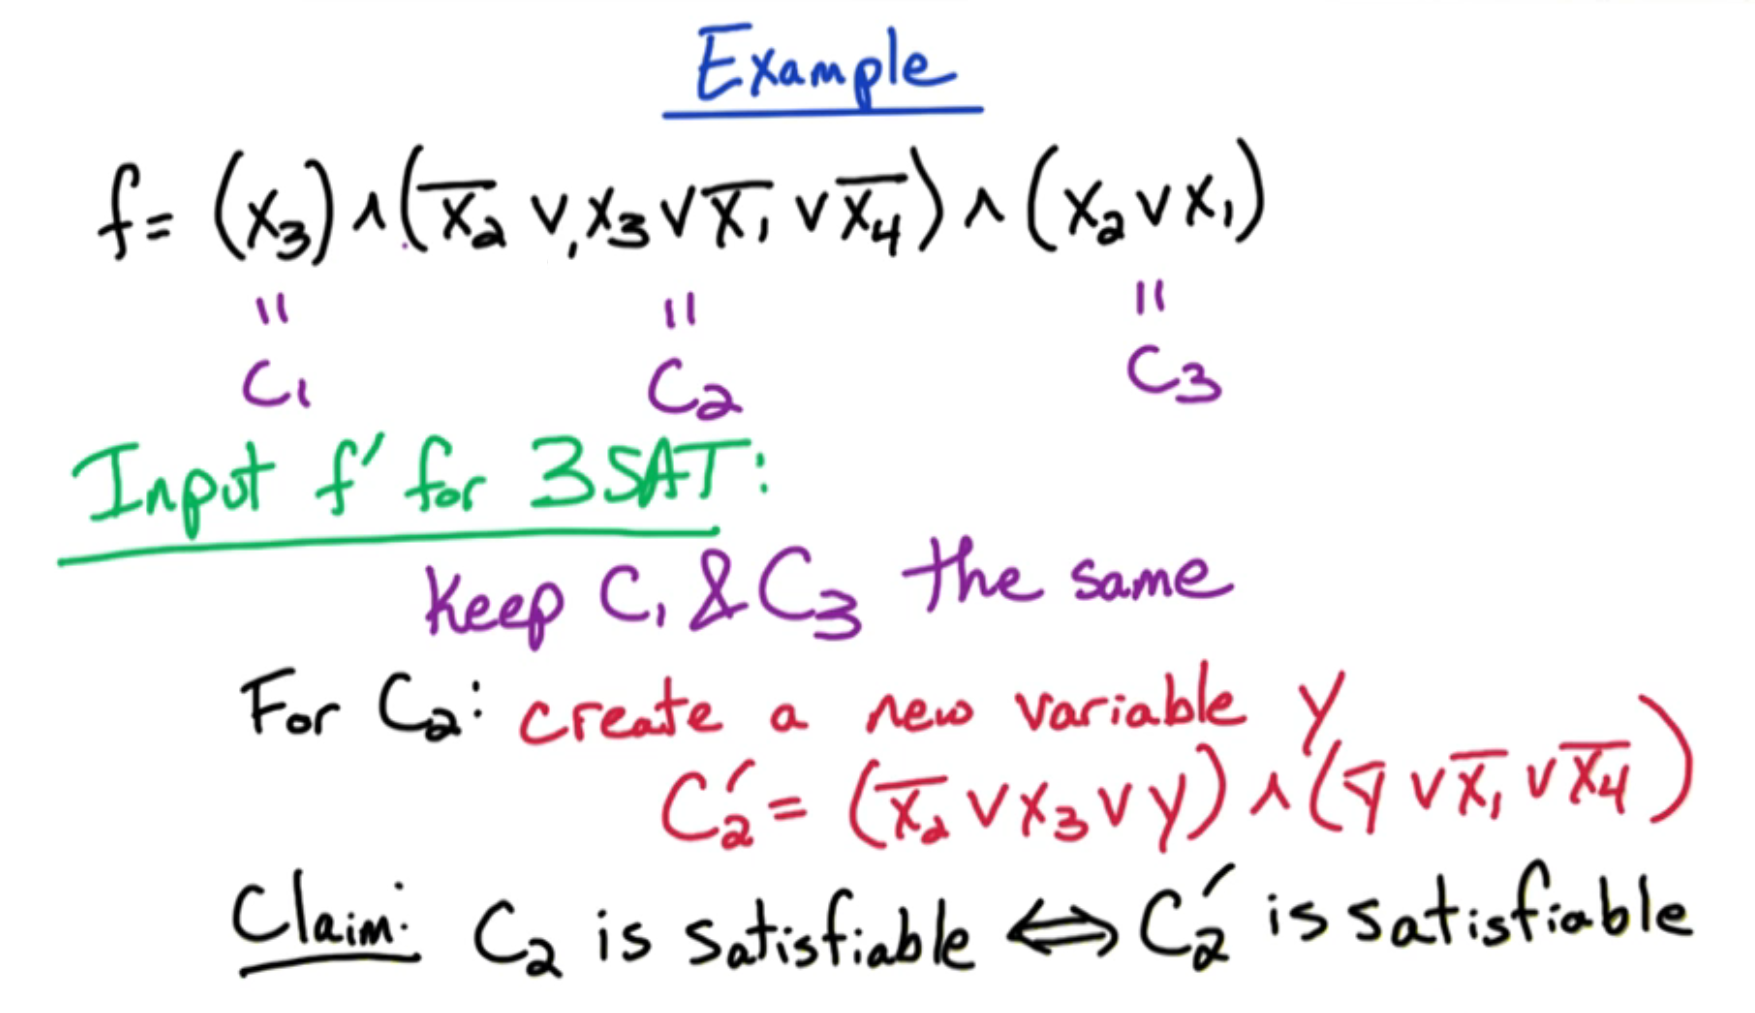 Example
f = (x₃) ∧ (x̅₂ ∨ x₃ ∨ x̅₁ ∨ x̅₄) ∧ (x₂ ∨ x₁)
= = =
C₁ C₂ C₃
Input f' for 3SAT:
Keep C₁ & C₃ the same
For C₂: create a new variable y
C₂' = (x̅₂ ∨ x₃ ∨ y) ∧ (y̅ ∨ x̅₁ ∨ x̅₄)
Claim: C₂ is satisfiable ⇔ C₂' is satisfiable